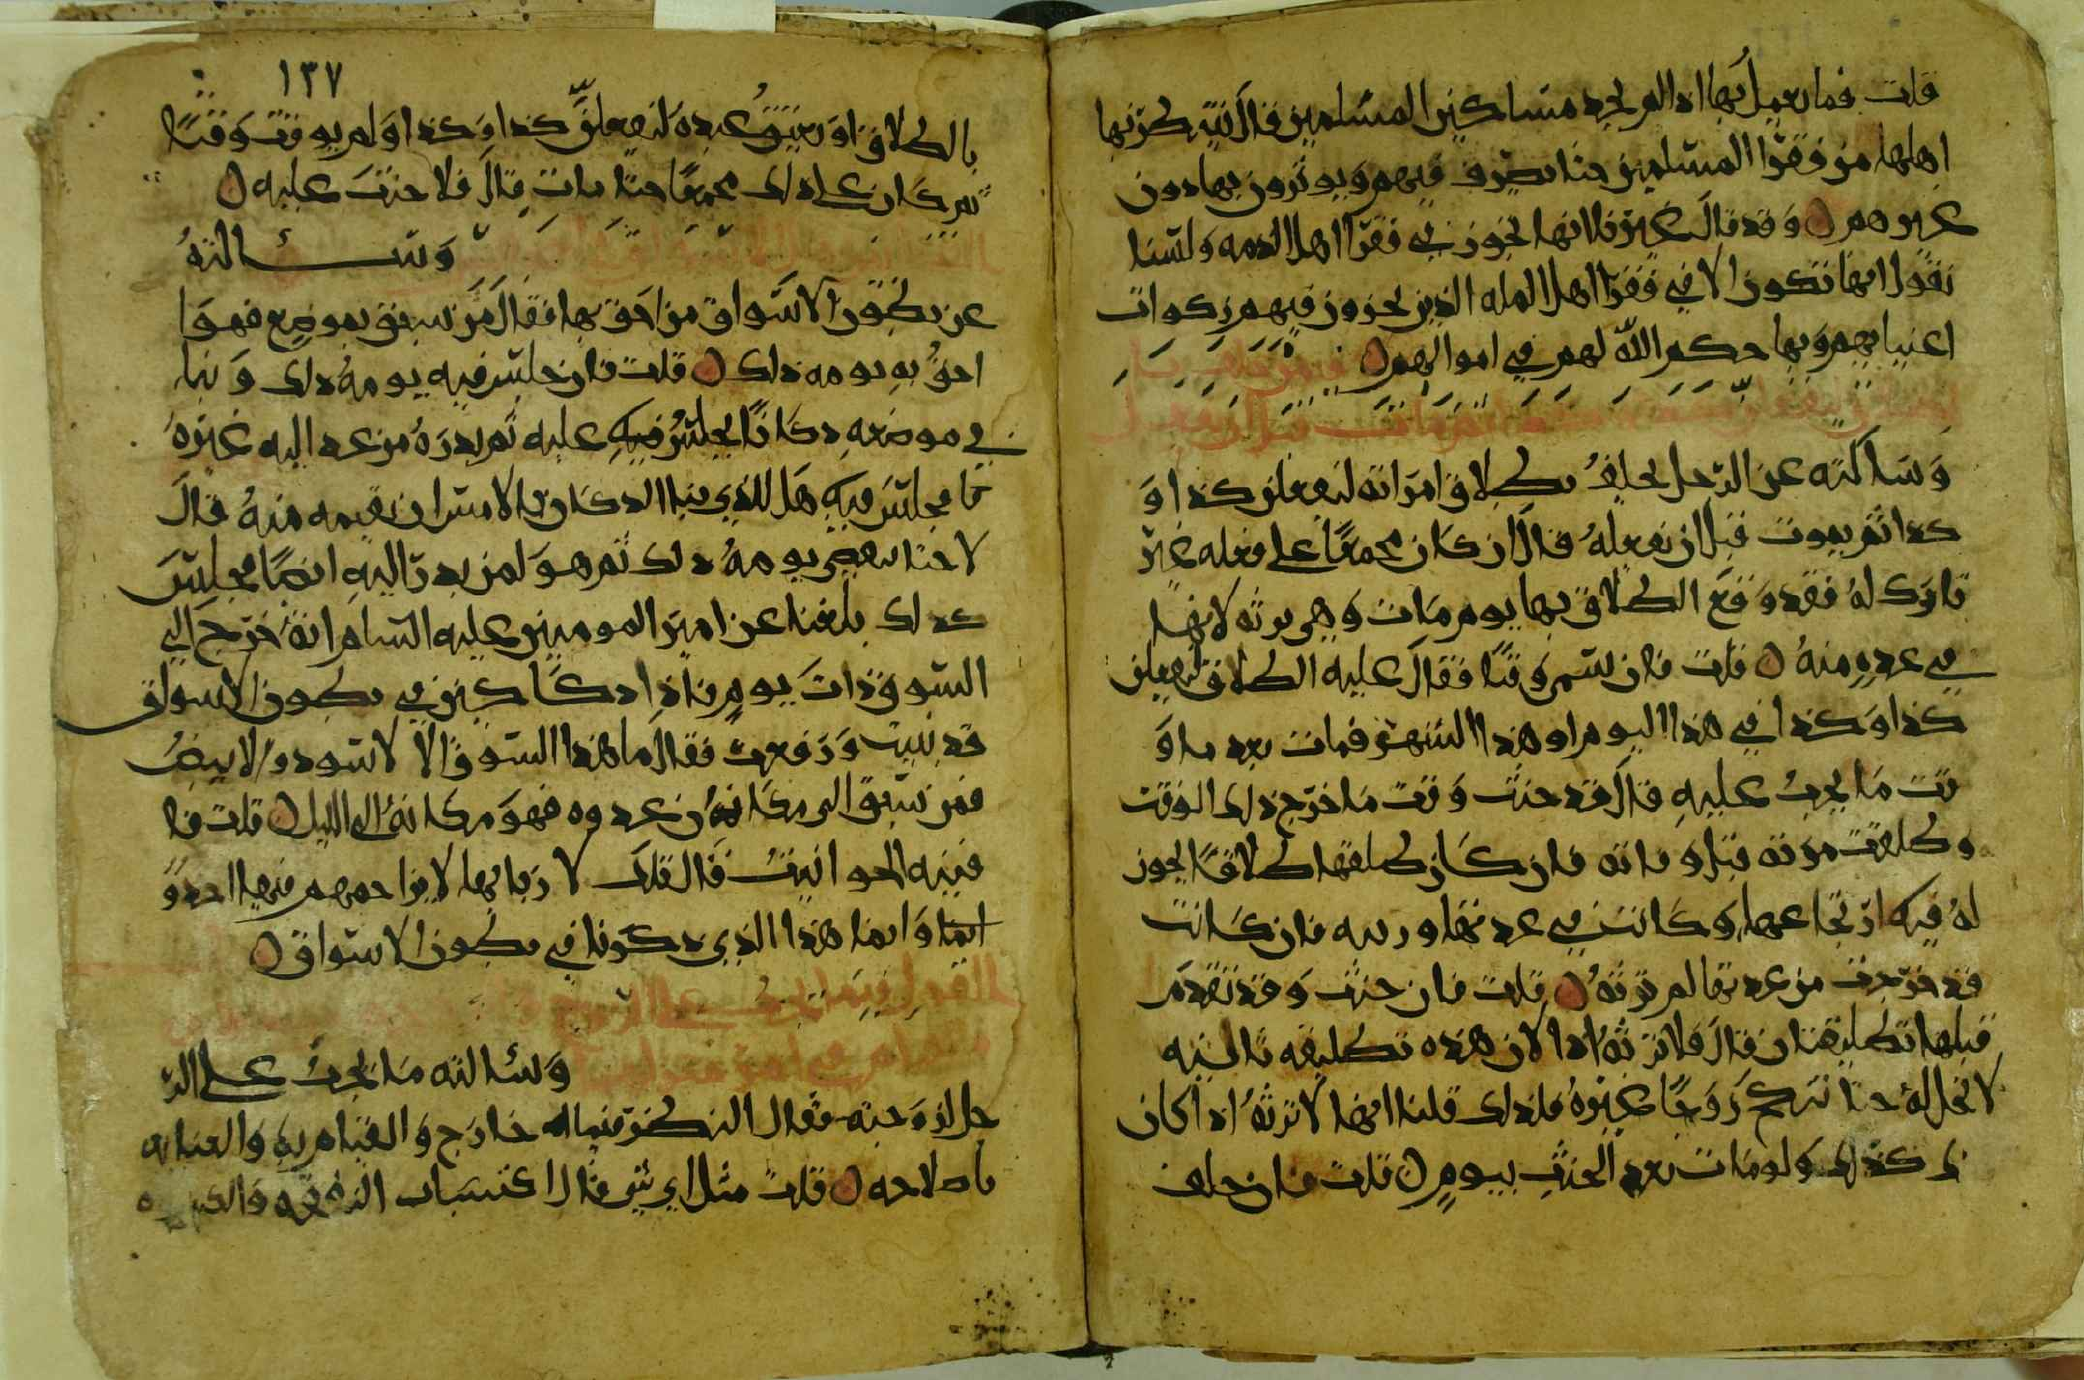 قلت فما يعمل بها اذا لم يجد مساكين المسلمين قال ينتظر بها
اهلها من فقرا المسلمين حتا يصرف فيهم ويوثرون بها دون
غيرهم وقد قال غيرنا انها تجوز في فقرا اهل الذمه ولسنا
نقول انها تكون الا في فقرا اهل المله الذين تجوز فيهم زكوات
اغنيايهم وبها حكم الله لهم في اموالهم
وسالته عن الرجل يحلف بطلاق امراته ليفعلن كذا او
كذا ثم يموت قبل ان يفعله قال ان كان مجمعا على فعله غير
تارك له فقد وقع الطلاق بها يوم مات وهي ترثه لانها
في عده منه قلت فان سم وقتا فقال عليه الطلاق ليفعلن
كذا وكذا في هذا اليوم او هذا الشهر فمات بعد ما و
قت ما يجب عليه قال قد حنث وقت ما خرج ذلك الوقت
وطلقت مرته قبل وفاته فان كان طلقها طلاقا يجوز
له فيه ارتجاعها وكانت في عدتها ورثته فان كانت
قد خرجت من عدتها لم ترثه قلت فان حنث وقد تقدم
قبلها تطليقتان قال فلا ترثه اذا لان هذه تطليقه ثالثيه
لا تحل له حتا تنكح زوجا غيره فلذلك قلنا انها لا ترثه اذا كان
ذلك كذلك ولو مات بعد الحنث بيوم قلت فان حلف
١٣٧
بالطلاق او بعتق عبده ليفعلن كذا وكذا ولم يوقت وقتا
ثم كان على ذلك مجمعا حتا مات قال فلا حنث عليه
وسألته
عن بطون الاسواق من احق بها فقال من سبق بموضع فهوا
احق به يومه ذلك قلت فان جلس فيه يومه ذلك وبنا
في موضعه دكانا يجلس فيه عليه ثم بدره من غد اليه غيره
فاجلس فيه هل للذي بنا الدكان بالامس ان يقيمه منه قال
لا حتا ينقضي يومه ذلك ثم هو لمن بدر اليه ايضا مجلس
كذلك بلغنا عن امير المومنين عليه السلم انه خرج الى
السوق ذات يوم فاذا دكاكين في بطون الاسواق
قد بنيت ورفعت فقال ما هذا السوق الا للاسود والابيض
فمن سبق الى مكانه من غدوه فهو مكانه الى الليل قلت فا
فنيه الحوانيت قال تلك لاربابها لا يزاحمهم فيها احد و
انما وانما هذا الذي ذكرنا في بطون الاسواق
القول فيما يجب على الزوج
وسألته ما يجب على الر
جل لزوجته فقال النظر فيما له خارج والقيام به والعنايه
باصلاحه قلت مثل اي شي قال اكتساب النفقه